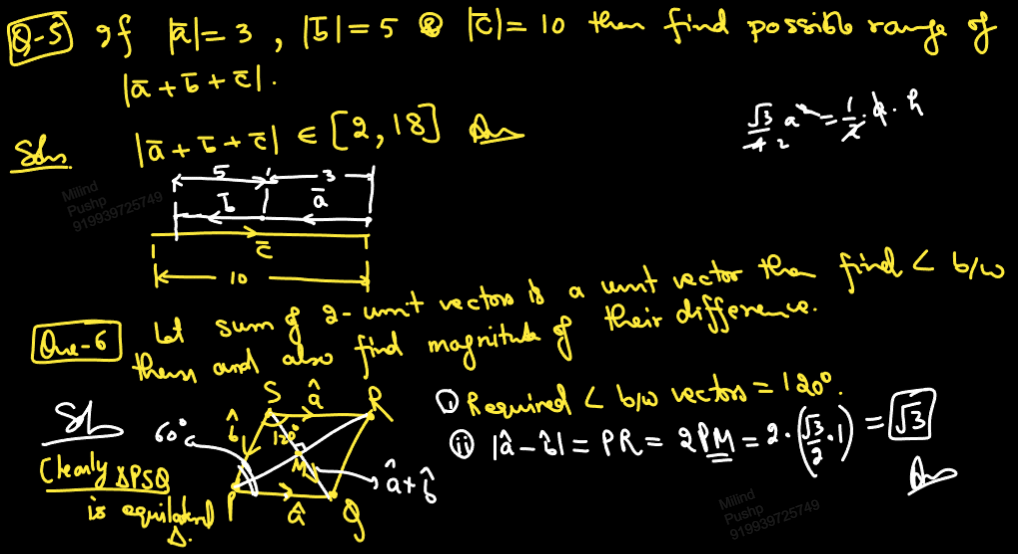 Q-5 If |a̅| = 3 , |b̅| = 5 & |c̅| = 10 then find possible range of
|a̅ + b̅ + c̅|.
Soln. |a̅ + b̅ + c̅| ∈ [2, 18] Ans
√3/4 a² = 1/2 · a · h
2
5 3
b̅ a̅
c̅
10
Milind
Pushp
919939725749
Que-6 Let sum of 2-unit vectors is a unit vector then find < b/w
them and also find magnitude of their difference.
Sol
S â R
b̂ 120°
60°
M
â + b̂
P â Q
Clearly ΔPSQ
is equilateral
Δ.
(i) Required < b/w vectors = 120°.
(ii) |â - b̂| = PR = 2PM = 2 · (√3/2 · 1) = √3
Ans
Milind
Pushp
919939725749